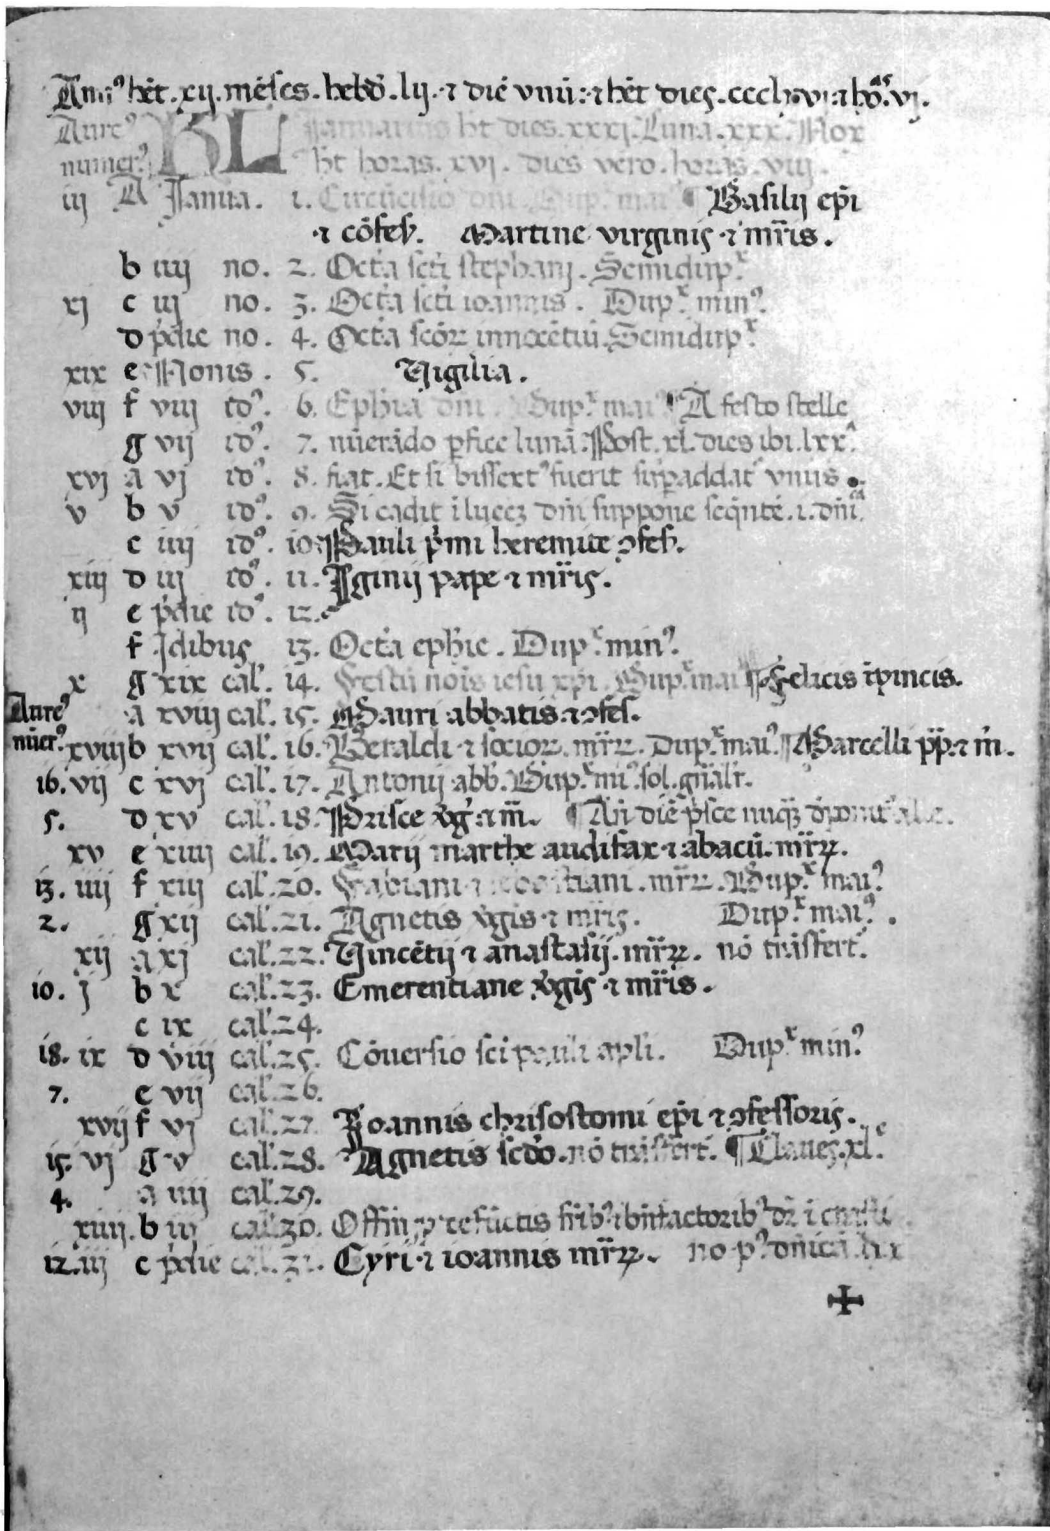 Ann⁹ hēt .xij. mēses. hebd̄. lij. ⁊ diē vnū: ⁊ hēt dieς. ccclxvi ⁊ ho᷒. vj.
Aure⁹ KL Januarius ht dies .xxxj. Luna .xxx. Nox
numer⁹ ht horas. xvj. dies vero. horas. viij.
iij A Janua. 1. Circūcisio dn̄i. Dup.ˣ mai⁹ ¶ Basilij ep̄i
⁊ cōfes̄. Martine virginiς ⁊ mr̄is.
b iiij no. 2. Octā scti stephanj. Semidup.ˣ
xj c iij no. 3. Octā scti ioannis. Dup.ˣ min⁹.
d pdie no. 4. Octā scōꝝ innocētiū. Semidup.ˣ
xix e Nonis. 5. Vigilia.
viij f viij id⁹. 6. Ephīa dn̄i. Dup.ˣ mai⁹ ¶ A festo stelle
g vij id⁹. 7. nūerādo ꝑfice lunā. Post .xl. dies ibi .lxxᵃ
xvj a vj id⁹. 8. fiat. Et si bissext⁹ fuerit suꝑaddat̄ vnus.
v b v id⁹. 9. Si cadit i luceꝫ dn̄i suppone seqn̄tē .i. dn̄icā
c iiij id⁹. 10. Pauli p̄mi heremite ɔfes̄.
xiij d iij id⁹. 11. Iginij pape ⁊ mr̄iς.
ij e pdie id⁹. 12.
f Idibuς 13. Octā ephīe. Dup.ˣ min⁹.
x g xix cal̄. 14. Festū nōis iesu xp̄i. Dup.ˣ mai⁹ ¶ Felicis ī pincis.
Aure⁹ a xviij cal̄. 15. Mauri abbatis ⁊ ɔfes̄.
nūer⁹. xviij b xvij cal̄. 16. Beraldi ⁊ socioꝝ. mr̄ꝝ. Dup.ˣ mai⁹. ¶ Marcelli pp̄. ⁊ m̄.
16. vij c xvj cal̄. 17. Antonij abb̄. Dup.ˣ mi⁹. sol. gn̄alr̄.
5. d xv cal̄. 18. Prisce vḡ. ⁊ m̄. ¶ An̄ diē pͥsce nūqͣꝫ alle.
xv e xiiij cal̄. 19. Marij marthe audifax ⁊ abacū. mr̄ꝝ.
13. iiij f xiij cal̄. 20. Fabiani ⁊ sebastiani. mr̄ꝝ. Dup.ˣ mai⁹.
2. g xij cal̄. 21. Agnetis vḡis ⁊ mr̄iς. Dup.ˣ mai⁹.
xij a xj cal̄. 22. Vincētij ⁊ anastasij. mr̄ꝝ. nō trāsfert̄.
10. j b x cal̄. 23. Emerentiane vḡiς ⁊ mr̄is.
c ix cal̄. 24.
18. ix d viij cal̄. 25. Cōuersio sci pauli apl̄i. Dup.ˣ min⁹.
7. e vij cal̄. 26.
xvij f vj cal̄. 27. Joannis chrisostomi ep̄i ⁊ ɔfessoris.
15. vj g v cal̄. 28. Agnetis scd̄o. nō trāsfert̄. ¶ Claueς .xlᵉ.
4. a iiij cal̄. 29.
xiiij. b iij cal̄. 30. Offm̄ ꝓ defūctis frīb⁹ ⁊ bn̄factorib⁹ dr̄ i
12. iij c pdie cal̄. 31. Cyri ⁊ ioannis mr̄ꝝ. no p⁹ dn̄icā